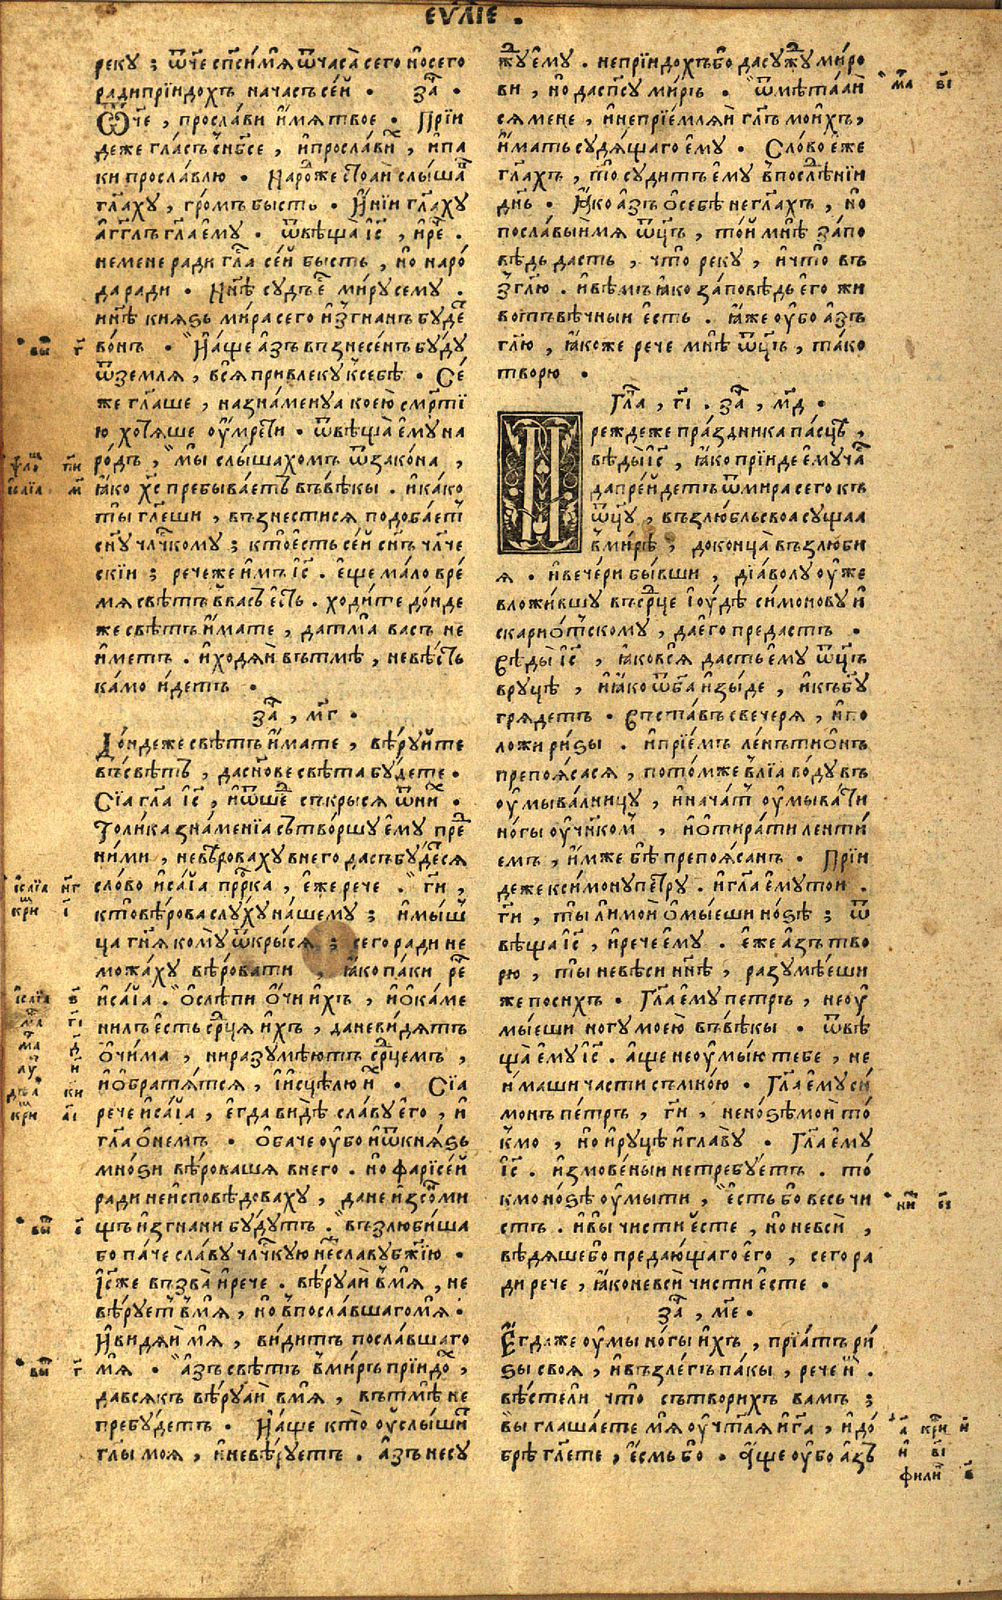 ЕѴⷢ҇ЛІЕ .
рекꙋ ; ѿч҃е сп҃си́ мѧ ѿ часа̀ сего но̀ сего
ради прїидохъ на часъ се́й . за҃ .
Ѿч҃е , просла́ви и́мѧ твое . Прїи
деже гла́съ съ нб҃се , и҆ просла́вих , и҆ па
ки просла́влю . Наро́же стоѧ́и слы́шаⷡ҇
гл҃аху , гро́мъ бысть . И҆нїи гл҃аху
а҆гг҃лъ гл҃а ему . ѿвѣща І҃с , и҆ ре҃ .
не мене ради гл҃а се́й бысть , но наро́
да ради . Нн҃ѣ судъ е҃ ми́ру сему .
нн҃ѣ кнѧ́зь ми́ра сего и҆згнанъ буде҃
во́нъ . И҆ а҆ще а҆зъ възнесе́нъ бу́ду
ѿ землѧ , всѧ̀ привлеку к себѣ . Се́
же гл҃аше , назна́менуа коею сме́ртї
ю хотѧше оу҆мрети . ѿвѣща ему на
ро́дъ , мы слы́шахомъ ѿ зако́на ,
ꙗ҆ко х҃с пребыва́етъ въ вѣ́кы . и҆ ка́ко
ты гл҃еши , възнестисѧ подоба́етъ
сн҃у чл҃чкому ; кто есть се́й сн҃ъ чл҃че
скїи ; рече же и҆мъ І҃с . еще ма́ло вре́
мѧ свѣтъ въ васъ есть . ходи́те до́нде
же свѣтъ и҆мате , да тма̀ васъ не
и҆метъ . и҆ ходѧ́и въ тмѣ , не вѣ́сть
ка́мо и҆детъ .
за҃ , м҃г .
До́ндеже свѣтъ и҆мате , вѣ́руйте
въ свѣтъ , да сн҃ове свѣта бу́дете .
Сїа гл҃а І҃с , и҆ ѿше҃ скрысѧ ѿ ни́х .
Толи́ка зна́менїа сътво́ршу ему пре́д
ними , не вѣ́роваху в него да сбу́детсѧ
сло́во и҆са́їа пр҃рка , е́же рече . г҃и ,
кто вѣ́рова слу́ху на́шему ; и҆ мы́ш
ца гн҃ѧ ко́му ѿкры́сѧ ; сего ради не
можа́ху вѣ́ровати , ꙗ҆ко па́ки ре҃
и҆са́їа . о҆слѣпи о҆чи и҆хъ , и҆ о҆ка́ме
нилъ есть ср҃цѧ и҆хъ , да не ви́дѧтъ
о҆чи́ма , ни разумѣ́ютъ ср҃цемъ ,
и҆ о҆братѧ́тсѧ , и҆ и҆сцѣлю и҆х . Сїа
рече и҆са́їа , егда ви́дѣ сла́ву его , и҆
гл҃а о҆ немъ . о҆баче оу҆бо и҆ ѿ кнѧ́зь
мно́зи вѣ́роваша в него . но фарїсе́й
ради не и҆сповѣдоваху , да не и҆з со́нми
щъ и҆згнани бу́дутъ . възлюби́ша
бо па́че сла́ву чл҃чкую неже славу бж҃їю .
І҃с же възва̀ и҆ рече . вѣ́руѧй в мѧ̀ , не
вѣ́руетъ в мѧ̀ , но в посла́вшаго мѧ̀ .
И҆ ви́дѧй мѧ̀ , ви́дитъ посла́вшаго
мѧ̀ . а҆зъ свѣтъ в ми́ръ прїидо́х ,
да всѧкъ вѣ́руѧй в мѧ̀ , въ тмѣ̀ не
пребу́детъ . И҆ а҆ще кто оу҆слы́шит
гл҃ы моѧ , и҆ не вѣ́руетъ . а҆зъ не су
жу ему . не прїидохъ бо да сужу ми́ро
ви , но да сп҃су ми́ръ . ѿмѣта́ѧй
сѧ мене , и҆ не прїе́млѧй гл҃ъ мои́хъ ,
и҆мать судѧ́щаго ему . Сло́во е́же
гл҃ахъ , то су́дитъ ему в послѣ́днїи
дн҃ь . Ꙗ҆ко а҆зъ о҆ себѣ̀ не гл҃ахъ , но
посла́выи мѧ ѿц҃ъ , то́й мнѣ за́по
вѣдь дасть , что реку , и҆ что въ
зг҃лю . и҆ вѣмъ ꙗ҆ко за́повѣдь его жи
во́тъ вѣ́чныи есть . ꙗ҆же оу҆бо а҆зъ
гл҃ю , ꙗ҆коже рече мнѣ ѿц҃ъ , та́ко
творю .
Гл҃а , г҃і . за҃ , м҃д .
Преж́деже пра́здника па́сцѣ ,
вѣ́дыи І҃с , ꙗ҆ко прїиде ему ча́с
да пре́йдетъ ѿ мира сего къ
ѿц҃у , възлюбль своа сущаа
в ми́рѣ , до конца̀ възлюби
ѧ . и҆ ве́чери бы́вши , дїа́волу оу҆же
вложи́вшу въ ср҃це і҆ю́дѣ си́монову и҆
скарио́тскому , да его предастъ .
Вѣ́дыи І҃с , ꙗ҆ко всѧ̀ дасть ему ѿц҃ъ
в руцѣ , и҆ ꙗ҆ко ѿ б҃а и҆зы́де , и҆ къ б҃у
грѧде́тъ . Въста́въ с ве́черѧ , и҆ по
ложи ри́зы . и҆ прїе́мъ ле́нътио҆нъ
препоꙗ́сасѧ , пото́мже влїа во́ду въ
оу҆мыва́лницу , и҆ нача́тъ оу҆мыва́ти
но́гы оу҆чнко́м , и҆ о҆тира́ти ленти́
емъ , и҆мже бѣ̀ препоꙗ́санъ . Прїи
деже к си́мону петру . и҆ гл҃а ему то́и .
г҃и , ты ли мо́и о҆мы́еши но́зѣ ; ѿ
вѣща І҃с , и҆ рече ему . е́же а҆зъ тво
рю , ты не вѣ́си нн҃ѣ , разумѣ́еши
же по си́хъ . Гл҃а ему петръ , не оу҆
мы́еши ногу моею въ вѣ́кы . ѿвѣ
ща̀ ему І҃с . а҆ще не оу҆мы́ю тебе , не
и҆маши части съ мно́ю . Гл҃а ему си́
монъ пе́тръ , г҃и , не но́зѣ мои то́
кмо , но и҆ ру́цѣ и҆ гла́ву . Гл҃а ему
І҃с . и҆змове́ныи не тре́буетъ . то́
кмо но́зѣ оу҆мы́ти , е҆сть бо весь чи
стъ . и҆ вы чисти е҆сте , но не всѝ ,
вѣ́дѧше бо предаю́щаго его , сего ра
ди рече , ꙗ҆ко не всѝ чисти есте .
за҃ , м҃е .
Егдаже оу҆мы но́гы и҆хъ , прїа́тъ ри́
зы своѧ , и҆ възле́гъ па́кы , рече и҆м .
вѣ́сте ли что̀ сътвори́хъ вамъ ;
вы глаша́ете мѧ̀ оу҆чт҃лѧ и҆ г҃а , и҆ до́
брѣ гл҃ете , е҆смь бо . а҆ще оу҆бо а҆зъ